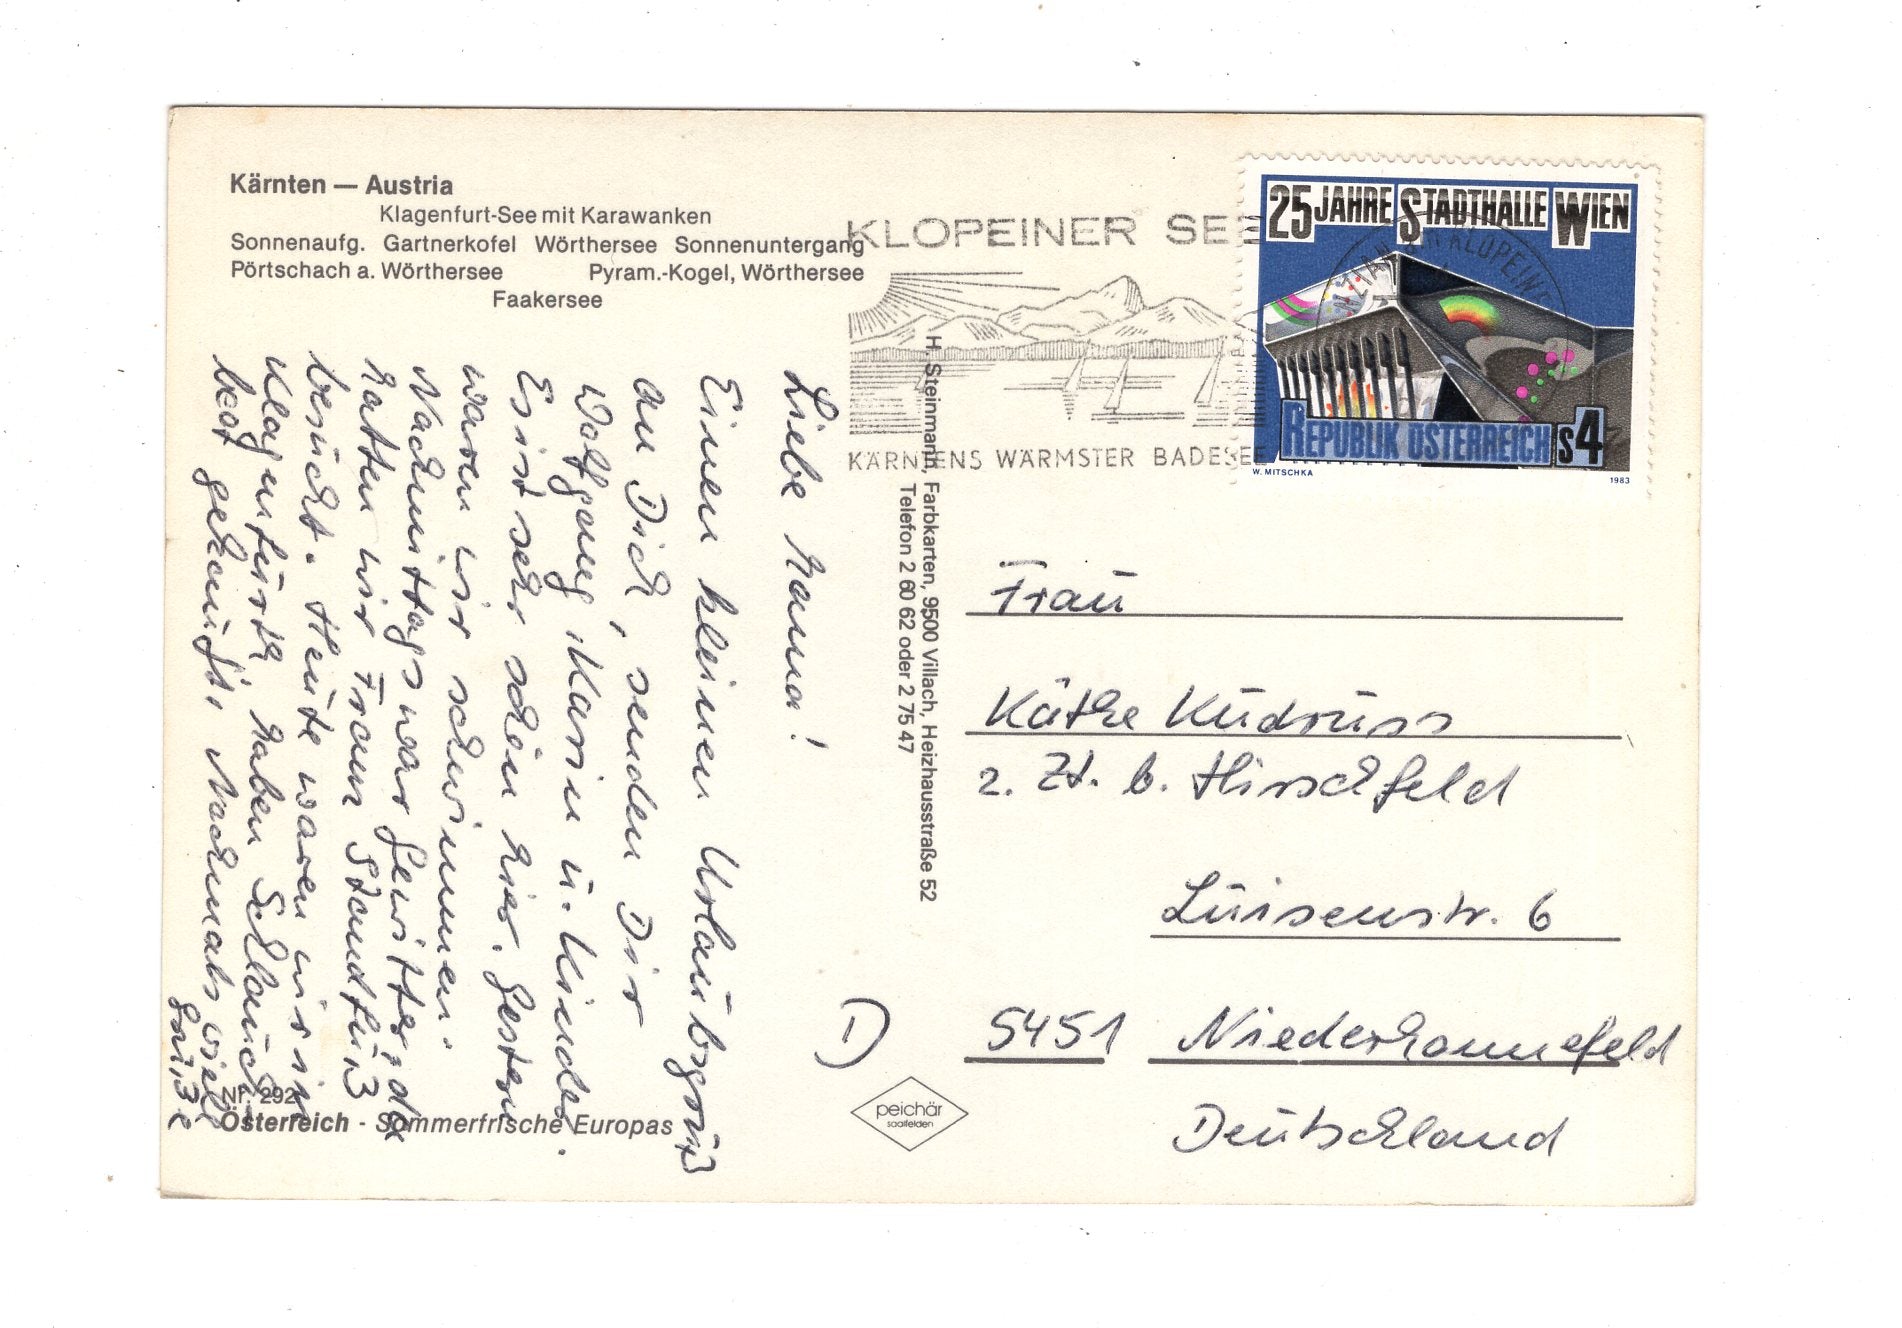 Kärnten — Austria
Klagenfurt-See mit Karawanken
Sonnenaufg. Gartnerkofel Wörthersee Sonnenuntergang
Pörtschach a. Wörthersee Pyram.-Kogel, Wörthersee
Faakersee
KLOPEINER SEE
KÄRNTENS WÄRMSTER BADESEE
25 JAHRE STADTHALLE WIEN
AM KLOPEINER
REPUBLIK ÖSTERREICH S4
W. MITSCHKA 1983
Liebe Mama!
Einen kleinen Urlaubsgruß
an Dich, senden Dir
Wolfgang, Karin u. Kinder.
Es ist sehr schön hier. Gestern
waren wir schwimmen.
Nachmittags war Gewitter, da
hatten wir Frau Standfuß
besucht. Heute waren wir in
Klagenfurth, haben Schlauch-
boot gekauft. Nochmals viele
Grüße
H. Steinmann, Farbkarten, 9500 Villach, Heizhausstraße 52
Telefon 2 60 62 oder 2 75 47
Frau
Käthe Kudruss
z. Zt. b. Hirschfeld
Luisenstr. 6
D 5451 Niederhonnefeld
Deutschland
Nr. 292
Österreich - Sommerfrische Europas
peichär
saalfelden